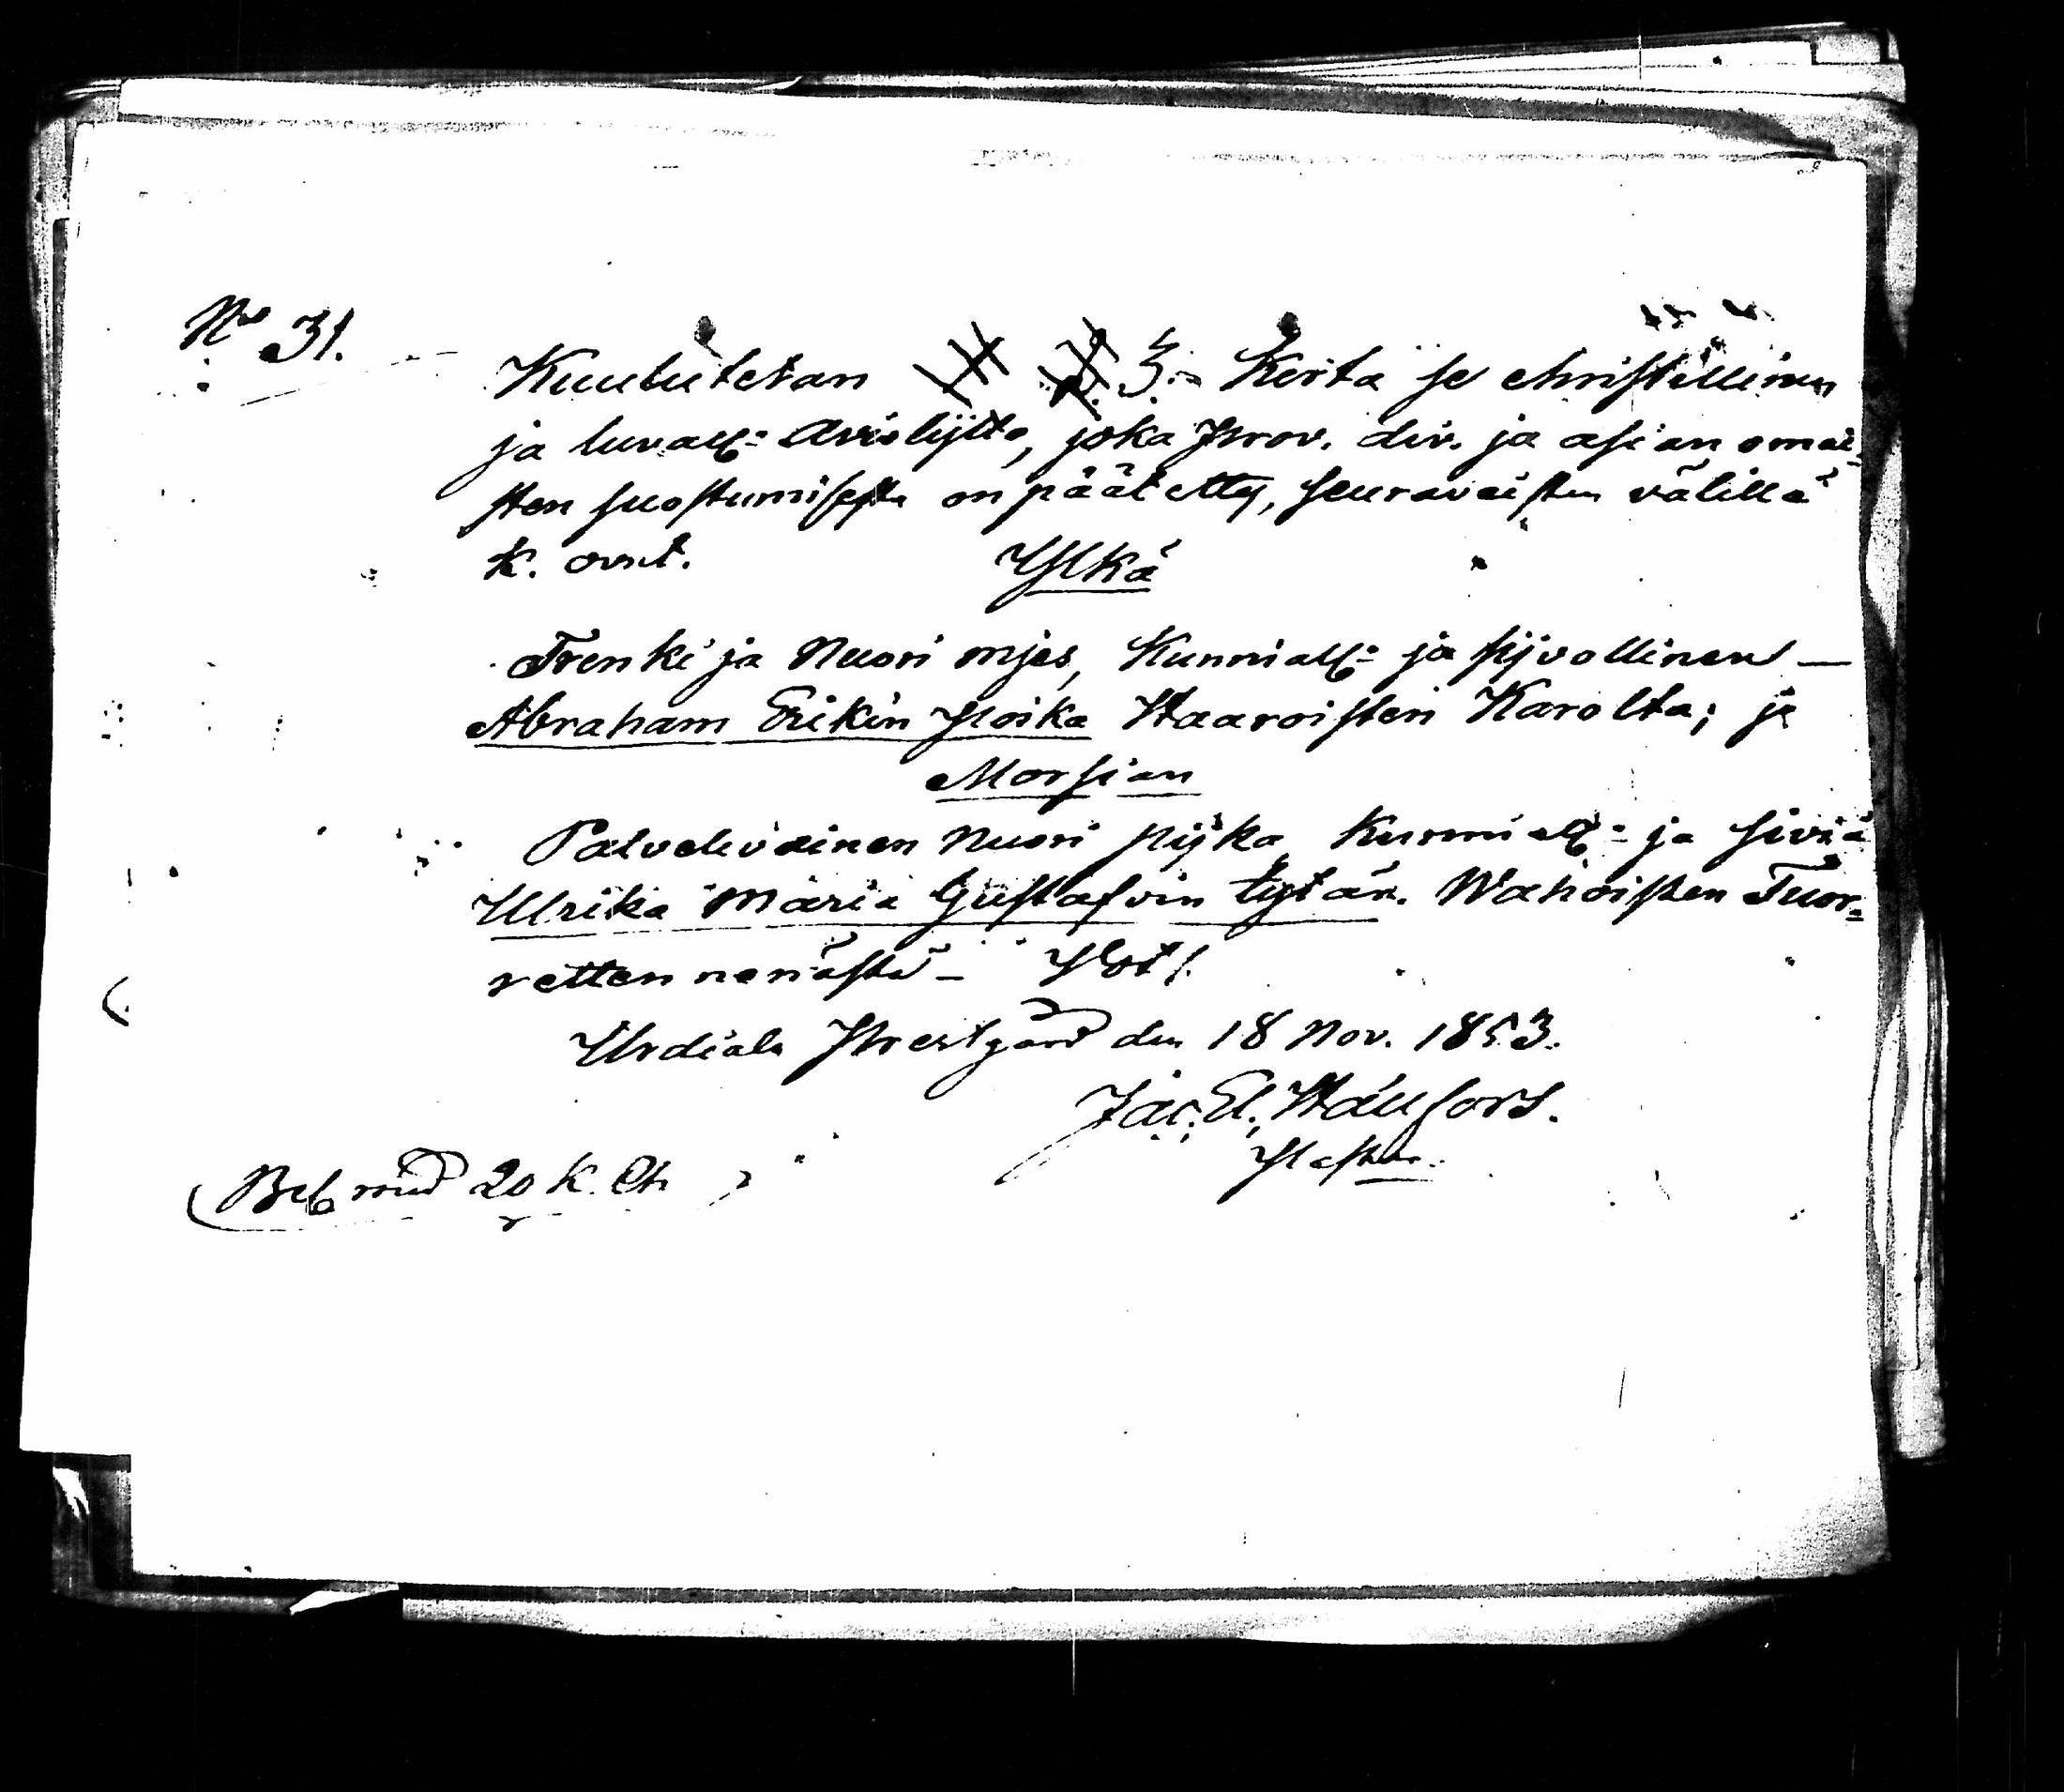 No 31.
Kuulutetan 3. Kerta se christillinen
ja luvall: Aviolijtto, joka Prov. div. ja asian omai-
sten suostumisesta on päätetty, seuravaisten välillä
k. ovat.
Ylkä
Trenki ja Nuori mjes, Kunniall: ja sijvollinen —
Abraham Erikin Poika Haaroisten Karolta; ja
Morsian
Palvelevainen Nuori pijka Kunniall: ja siviä
Ulrika Maria Gustafvin tytär. Wahoisten Tuor-
retten nenästä —
Urdiala Prestgård den 18 Nov. 1853.
Jac. El.
Pastor.
med 20 k.